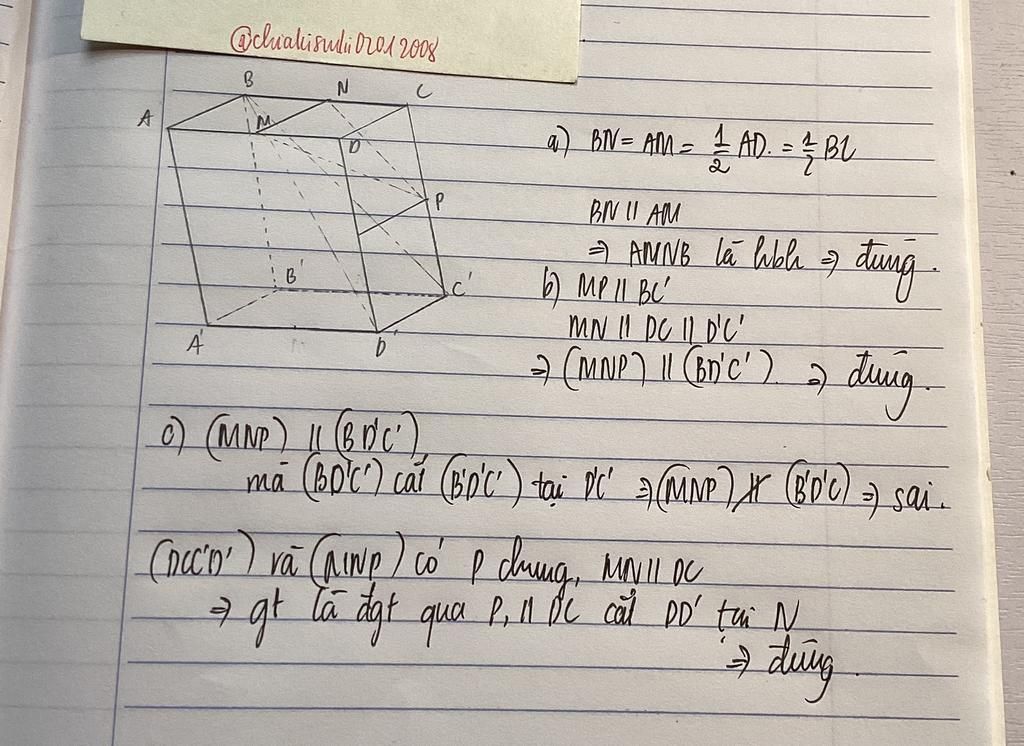 @chiakisuhii02012008
B N C
A M D
P
B' C'
A' D'
a) BN = AM = 1/2 AD. = 1/2 BC
BN // AM
⇒ AMNB là hbh ⇒ đúng.
b) MP // BC'
MN // DC // D'C'
⇒ (MNP) // (BD'C') ⇒ đúng.
c) (MNP) // (BD'C')
mà (BD'C') cắt (B'D'C') tại D'C' ⇒ (MNP) ∦ (B'D'C) ⇒ sai.
(DCC'D') và (MNP) có P chung, MN // DC
⇒ gt là đgt qua P, // DC cắt DD' tại N
⇒ đúng.